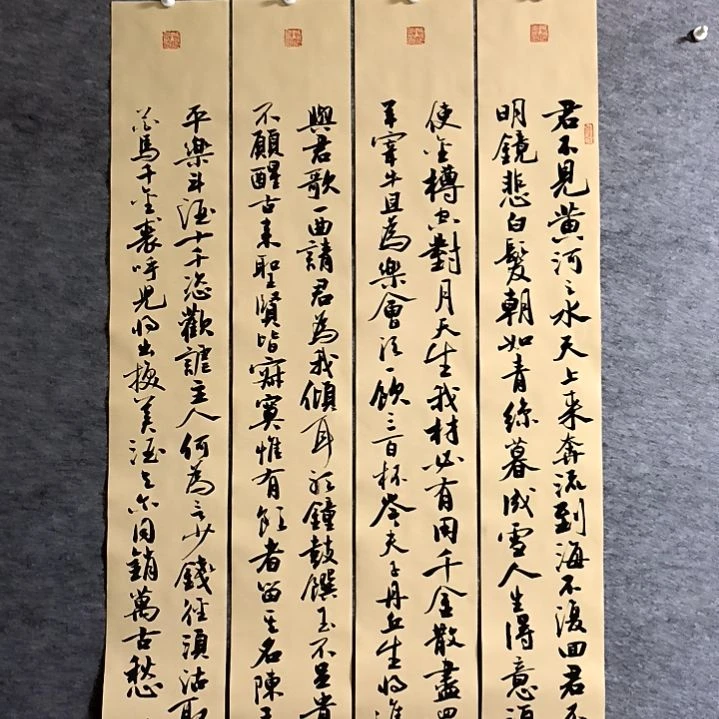 君不見黄河之水天上来奔流到海不復回君不
明鏡悲白髮朝如青絲暮成雪人生得意須
使金樽空對月天生我材必有用千金散盡
羊宰牛且為樂會須一飲三百杯岑夫子丹丘生将進
與君歌一曲請君為我傾耳鐘鼓饌玉不足貴
不願醒古来聖賢皆寂寞惟有飲者留其名陳王
平樂斗酒十千恣歡謔主人何為言少錢徑須沽取
花馬千金裘呼兒将出換美酒与尔同銷萬古愁